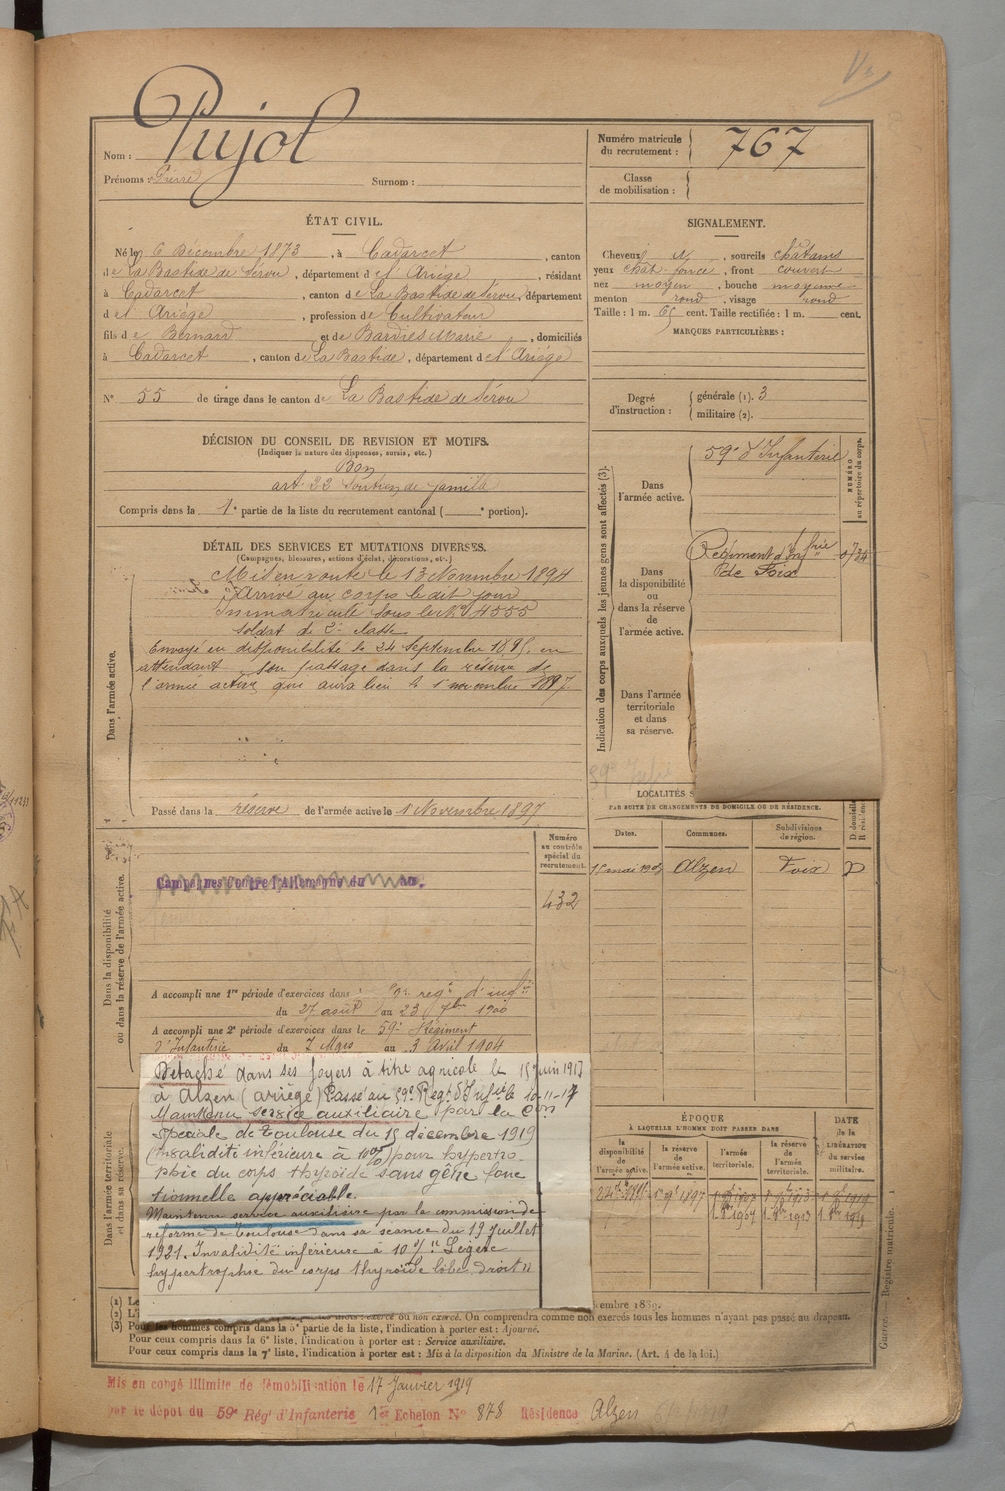 Nom : Pujol
Prénoms : Pierre Surnom :
Numéro matricule du recrutement : 767
Classe de mobilisation :
ÉTAT CIVIL.
Né le 6 Décembre 1873, à Cadarcet, canton
de La Bastide de Sérou, département de l'Ariège, résidant
à Cadarcet, canton de La Bastide de Sérou, département
de l'Ariège, profession de Cultivateur
fils de Bernard et de Bardies Marie, domiciliés
à Cadarcet, canton de La Bastide, département de l'Ariège
N° 55 de tirage dans le canton de La Bastide de Sérou
SIGNALEMENT.
Cheveux d, sourcils châtains
yeux chât. foncé, front couvert
nez moyen, bouche moyenne
menton rond, visage rond
Taille : 1 m. 65 cent. Taille rectifiée : 1 m. cent.
MARQUES PARTICULIÈRES :
Degré d'instruction : générale (1). 3
militaire (2).
DÉCISION DU CONSEIL DE REVISION ET MOTIFS.
(Indiquer la nature des dispenses, sursis, etc.)
Bon
art. 22 Soutien de famille
Compris dans la 1e partie de la liste du recrutement cantonal ( e portion).
DÉTAIL DES SERVICES ET MUTATIONS DIVERSES.
(Campagnes, blessures, actions d'éclat, décorations, etc.)
Dans l'armée active.
Mis en route le 13 Novembre 1894
Arrivé au corps le dit jour
Immatriculé sous le N° 4555
soldat de 2e classe
Envoyé en disponibilité le 24 septembre 1895 en
attendant son passage dans la réserve de
l'armée active qui aura lieu le 1 novembre 1897
Passé dans la réserve de l'armée active le 1 Novembre 1897
Indication des corps auxquels les jeunes gens sont affectés (3).
NUMÉRO au répertoire du corps.
Dans l'armée active.
59e d'Infanterie
Dans la disponibilité ou dans la réserve de l'armée active.
Régiment d'Inf frie
de Foix
Dans l'armée territoriale et dans sa réserve.
LOCALITÉS
PAR SUITE DE CHANGEMENTS DE DOMICILE OU DE RÉSIDENCE.
Dates. Communes. Subdivisions de région.
mai Alzen Foix
Dans la disponibilité ou dans la réserve de l'armée active.
Numéro au contrôle spécial du recrutement.
432
Campagnes contre l'Allemagne du au
A accompli une 1re période d'exercices dans regt d'inf
du 27 août au 23 7bre 1900
A accompli une 2e période d'exercices dans le 59e Régiment
d'Infanterie du 7 Mars au 3 Avril 1904
Détaché dans ses foyers à titre agricole le 15 juin 1917
à Alzen (ariège) Passé au 59e Regt d'Infrie le 10-11-17
Maintenu service auxiliaire par la Con
Spéciale de Toulouse du 15 décembre 1919
(Invalidité inférieure à 10%) pour hypertro-
phie du corps thyroïde sans gêne fonc
tionnelle appréciable.
Maintenu service auxiliaire par la commission de
réforme de Toulouse dans sa séance du 19 juillet
1921. Invalidité inférieure à 10% "Légère
hypertrophie du corps thyroïde lobe droit"
Dans l'armée territoriale et dans sa réserve.
ÉPOQUE
À LAQUELLE L'HOMME DOIT PASSER DANS
la disponibilité de l'armée active. la réserve de l'armée active. l'armée territoriale. la réserve de l'armée territoriale. DATE de la LIBÉRATION du service militaire.
1 9bre 1897
(1) Le
(2) L'i
exercé ou non exercé. On comprendra comme non exercés tous les hommes n'ayant pas passé au drapeau.
(3) Pour les hommes compris dans la 5e partie de la liste, l'indication à porter est : Ajourné.
Pour ceux compris dans la 6e liste, l'indication à porter est : Service auxiliaire.
Pour ceux compris dans la 7e liste, l'indication à porter est : Mis à la disposition du Ministre de la Marine. (Art. 4 de la loi.)
Guerre. — Registre matricule. 1
Mis en congé illimité de démobilisation le 17 Janvier 1919
par le dépôt du 59e Rég' d'Infanterie 1er Echelon N° 878 Résidence Alzen